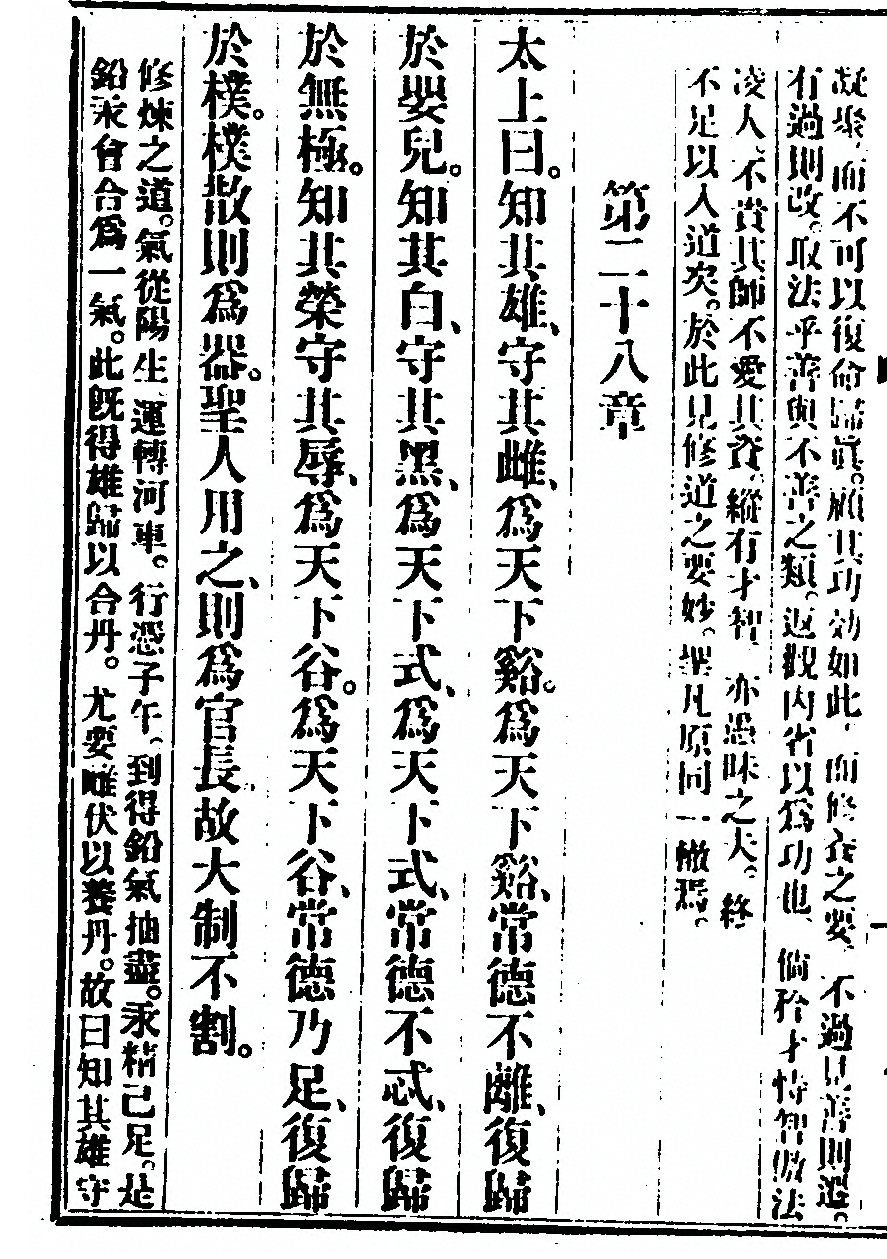 凝聚、而不可以復命歸眞。顧其功効如此、而修養之要、不過見善則遷。
有過則改。取法乎善與不善之類。返觀內省以爲功也、倘矜才恃智傲法
凌人、不貴其師不愛其資、縱有才智、亦愚昧之夫。終
不足以入道矣。於此見修道之要妙。聖凡原同一轍焉。
第二十八章
太上曰。知其雄、守其雌、爲天下谿。爲天下谿、常德不離、復歸
於嬰兒。知其白、守其黑、爲天下式、爲天下式、常德不忒、復歸
於無極。知其榮守其辱、爲天下谷。爲天下谷、常德乃足、復歸
於樸。樸散則爲器。聖人用之、則爲官長。故大制不割。
修煉之道。氣從陽生、運轉河車。行憑子午、到得鉛氣抽盡。汞精已足。是
鉛汞會合爲一氣。此旣得雄歸以合丹。尤要雌伏以養丹。故曰知其雄守